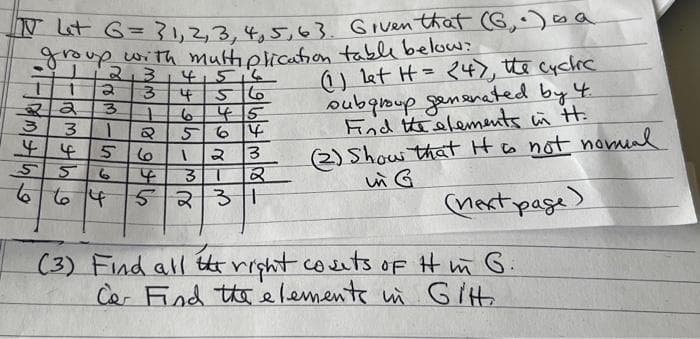 IV Let G = {1,2,3,4,5,6}. Given that (G,·) is a
group with multiplication table below:
· 1 2 3 4 5 6
1 1 2 3 4 5 6
2 2 3 1 6 4 5
3 3 1 2 5 6 4
4 4 5 6 1 2 3
5 5 6 4 3 1 2
6 6 4 5 2 3 1
(1) Let H = <4>, the cyclic
subgroup generated by 4.
Find the elements in H.
(2) Show that H is not normal
in G
(next page)
(3) Find all the right cosets of H in G.
ie Find the elements in G/H.